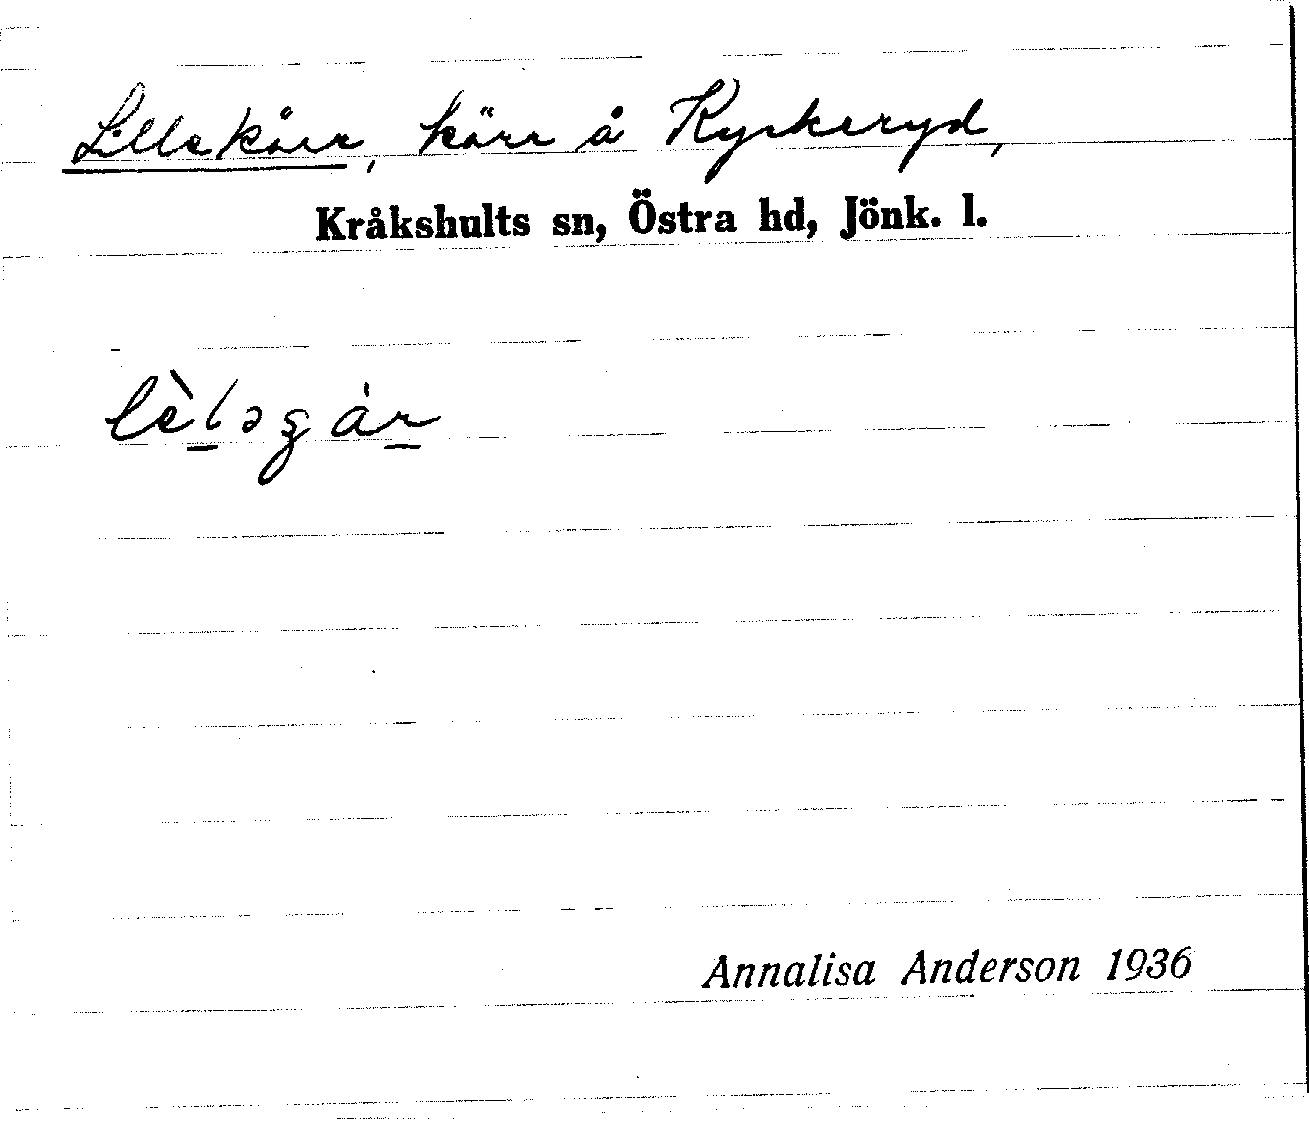 Lillekårr, kärr å Kyrkeryd,
Kråkshults sn, Östra hd, Jönk. l.
Annalisa Anderson 1936